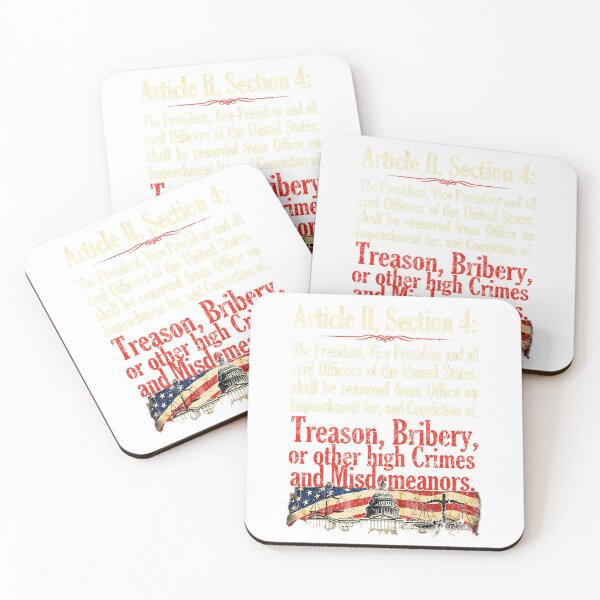 Article II, Section 4:
The President, Vice President and all
civil Officers of the United States,
shall be removed from Office on
Impeachment for, and Conviction of,
Bribery,
Article II, Section 4:
The President, Vice President and all
civil Officers of the United States,
shall be removed from Office on
Impeachment for, and Conviction of,
Treason, Bribery,
or other high Crimes
and Misdemeanors.
Article II, Section 4:
The President, Vice President and all
civil Officers of the United States,
shall be removed from Office on
Impeachment for, and Conviction of,
Treason, Bribery,
or other high
and Misdemeanors.
Article II, Section 4:
The President, Vice President and all
civil Officers of the United States,
shall be removed from Office on
Impeachment for, and Conviction of,
Treason, Bribery,
or other high Crimes
and Misdemeanors.